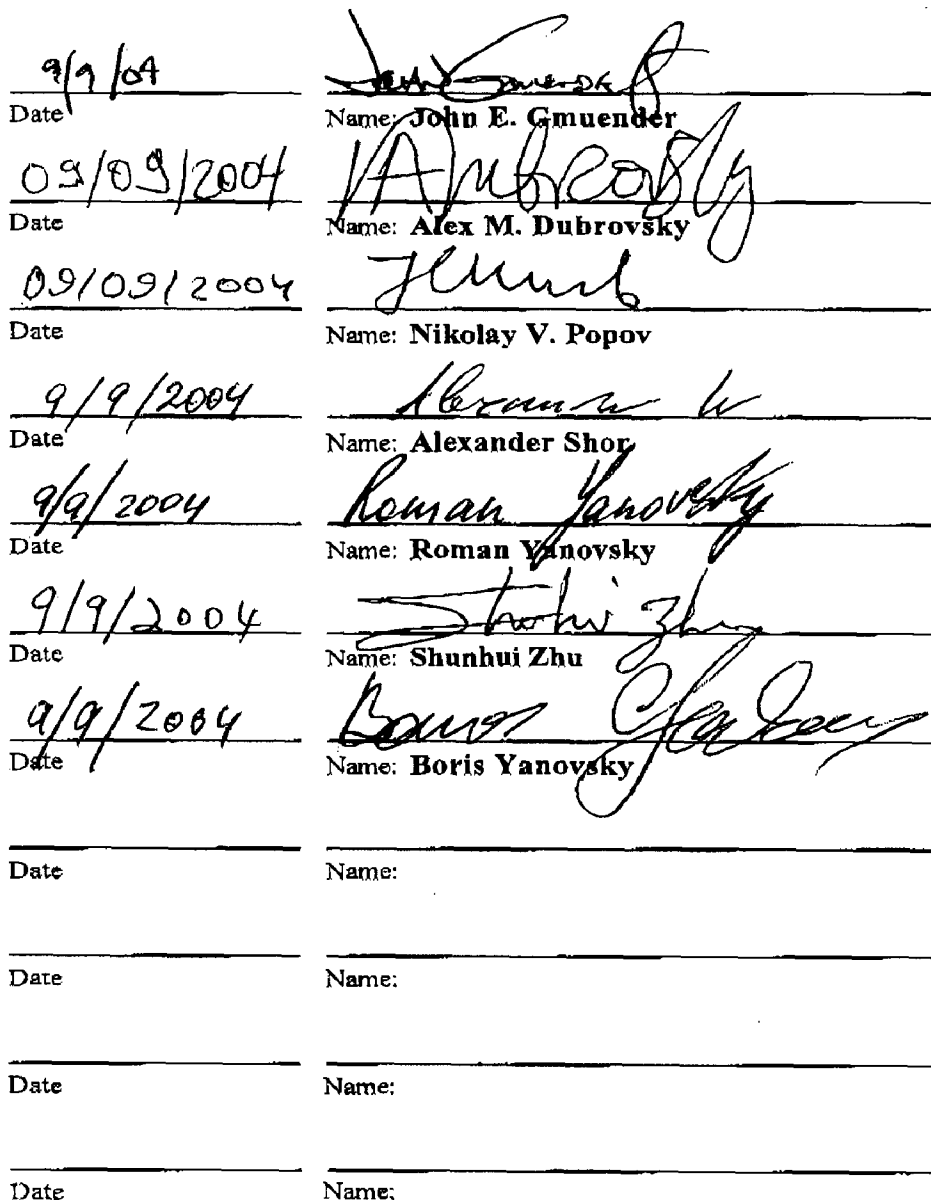 9/9/04
Date Name: John E. Gmuender
09/09/2004 ADubrovsky
Date Name: Alex M. Dubrovsky
09/09/2004
Date Name: Nikolay V. Popov
9/9/2004
Date Name: Alexander Shor
9/9/2004 Roman Yanovsky
Date Name: Roman Yanovsky
9/9/2004 Shunhui Zhu
Date Name: Shunhui Zhu
9/9/2004
Date Name: Boris Yanovsky
Date Name:
Date Name:
Date Name:
Date Name: